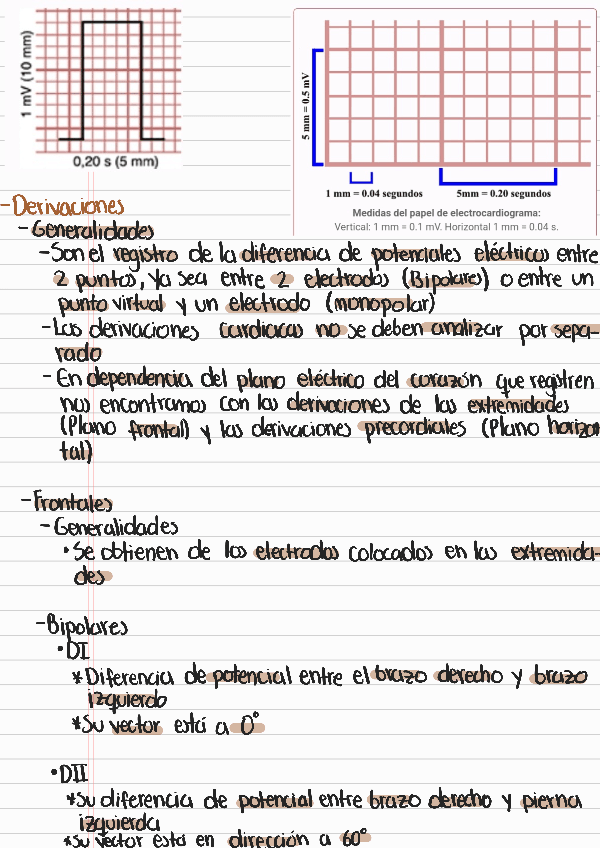 1 mV (10 mm)
0,20 s (5 mm)
5 mm = 0.5 mV
1 mm = 0.04 segundos
5mm = 0.20 segundos
Medidas del papel de electrocardiograma:
Vertical: 1 mm = 0.1 mV. Horizontal 1 mm = 0.04 s.
-Derivaciones
-Generalidades
-Son el registro de la diferencia de potenciales eléctricos entre
2 puntos, ya sea entre 2 electrodos (Bipolares) o entre un
punto virtual y un electrodo (monopolar)
-Las derivaciones cardiacas no se deben analizar por sepa-
rado
-En dependencia del plano eléctrico del corazón que registren
nos encontramos con las derivaciones de las extremidades
(Plano frontal) y las derivaciones precordiales (Plano horizon
tal)
-Frontales
-Generalidades
•Se obtienen de los electrodos colocados en las extremida-
des
-Bipolares
•DI
*Diferencia de potencial entre el brazo derecho y brazo
izquierdo
*Su vector está a 0°
•DII
*Su diferencia de potencial entre brazo derecho y pierna
izquierda
*Su vector esta en dirección a 60°